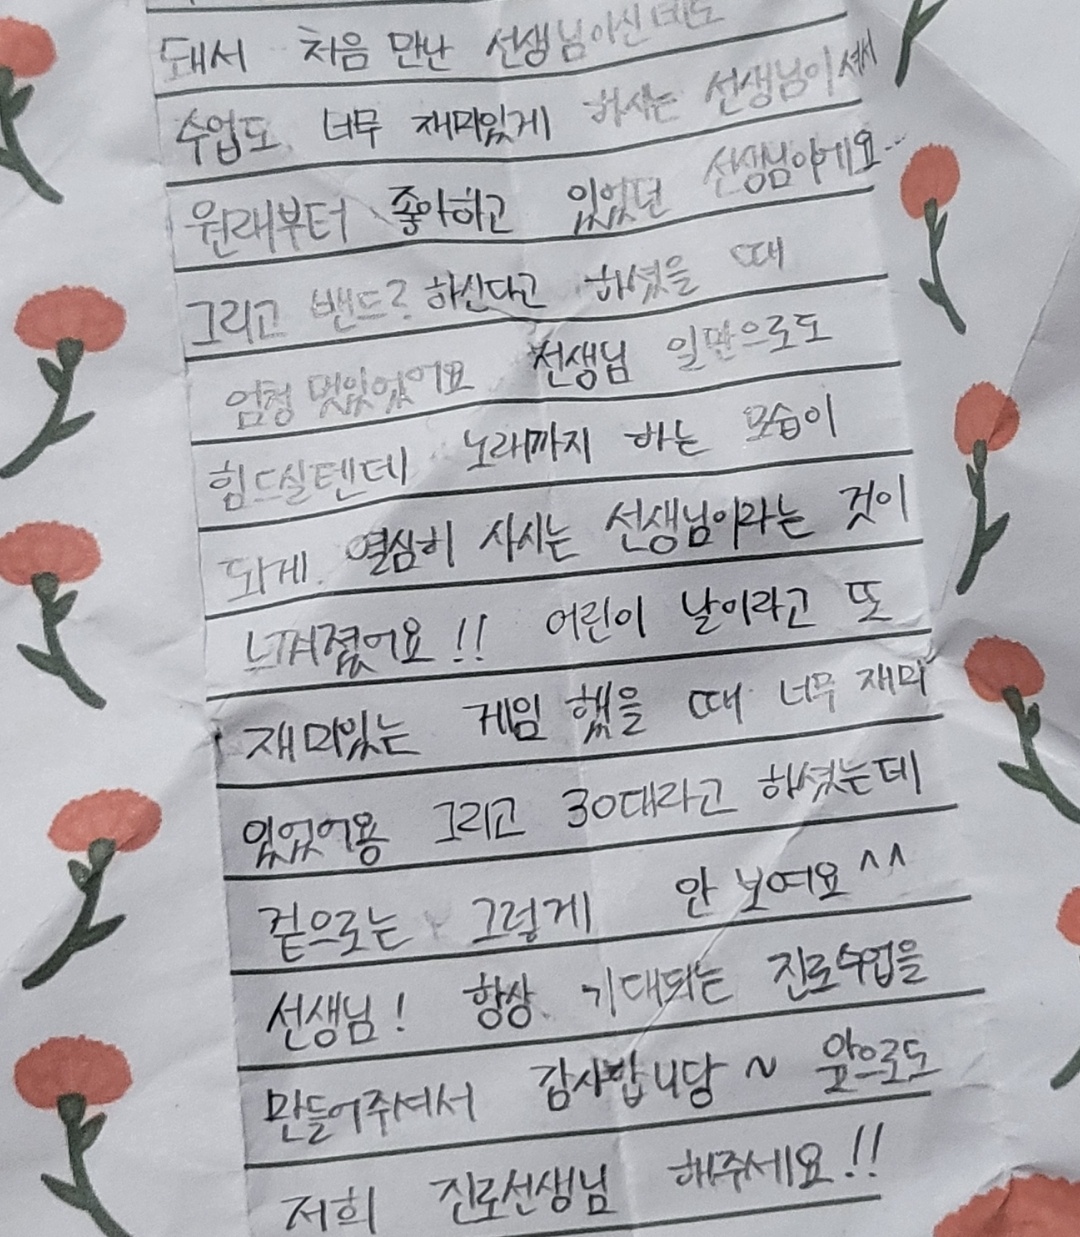 돼서 처음 만난 선생님이신데도
수업도 너무 재미있게 하시는 선생님이셔서
원래부터 좋아하고 있었던 선생님이에요..
그리고 밴드? 하신다고 하셨을 때
엄청 멋있었어요 선생님 일만으로도
힘드실텐데 노래까지 하는 모습이
되게 열심히 사시는 선생님이라는 것이
느껴졌어요!! 어린이 날이라고 또
재미있는 게임 했을 때 너무 재미
있었어용 그리고 30대라고 하셨는데
겉으로는 그렇게 안 보여요^^
선생님! 항상 기대되는 진로수업을
만들어주셔서 감사합니당~ 앞으로도
저희 진로선생님 해주세요!!